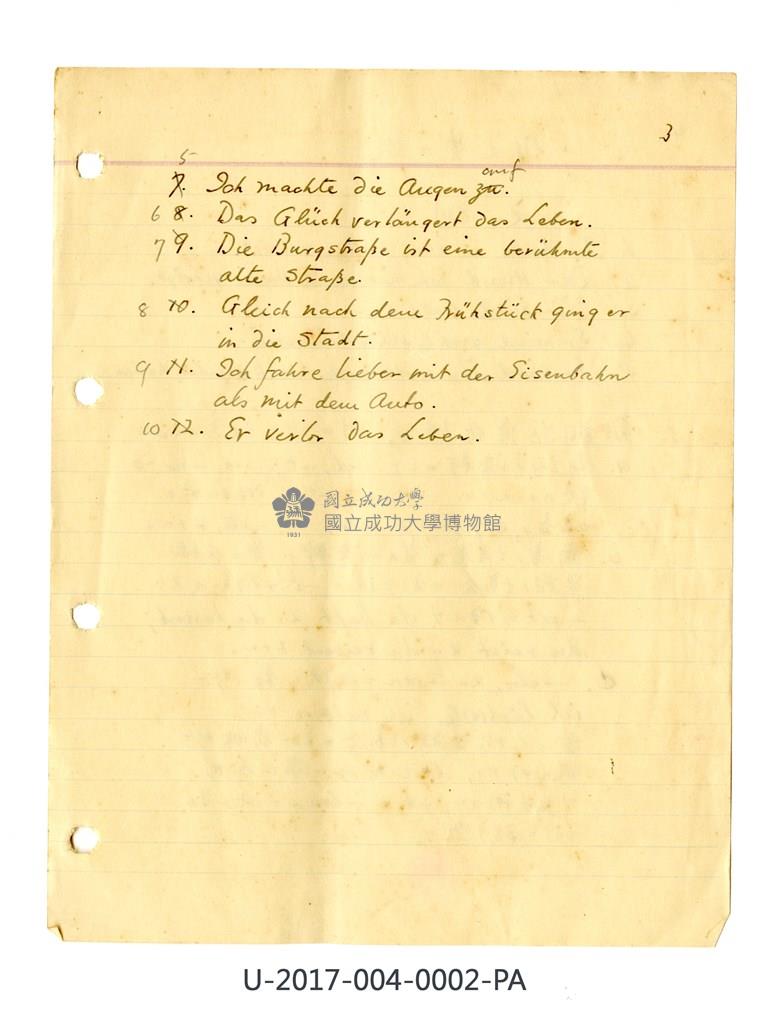 3
5
7. Ich machte die Augen zu. auf
6 8. Das Glück verlängert das Leben.
7 9. Die Burgstraße ist eine berühmte
alte Straße.
8 10. Gleich nach dem Frühstück ging er
in die Stadt.
9 11. Ich fahre lieber mit der Eisenbahn
als mit dem Auto.
10 12. Er verlor das Leben.
國立成功大學
國立成功大學博物館
1931
U-2017-004-0002-PA